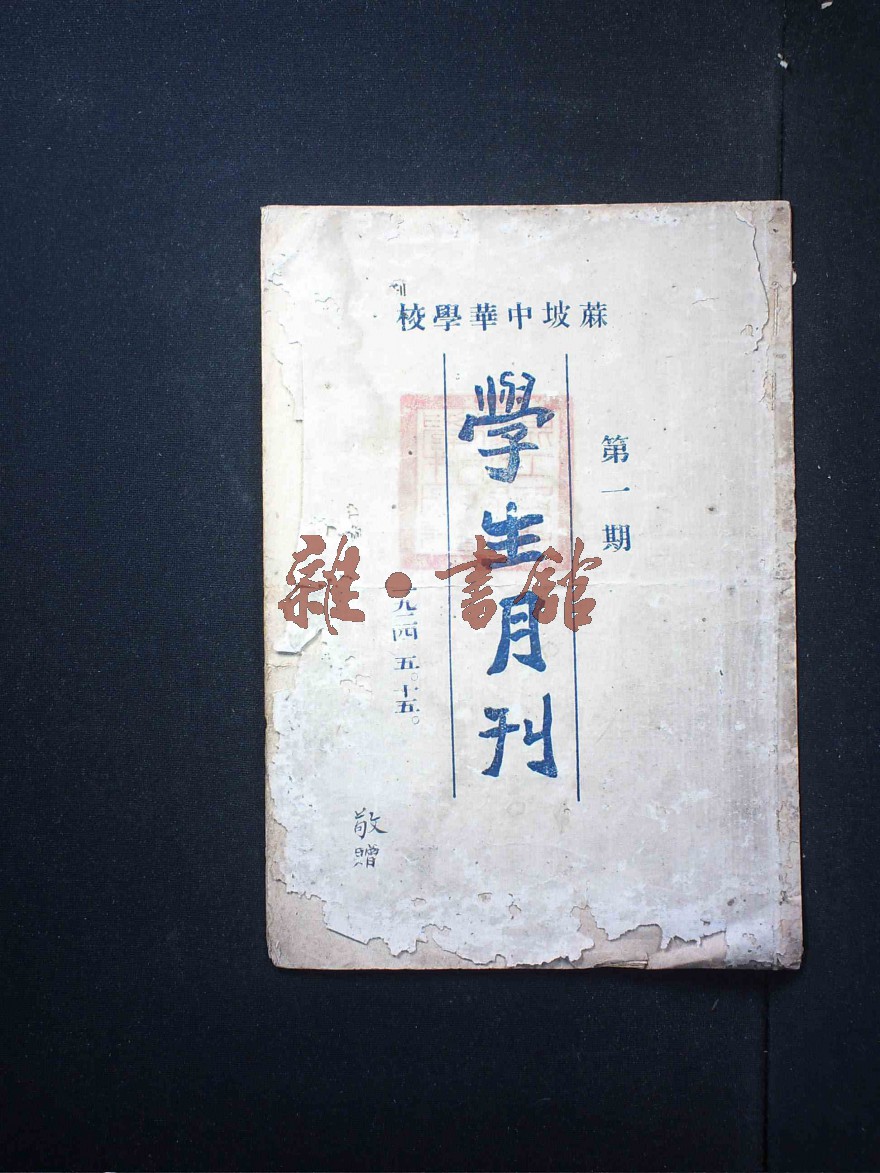 蔴坡中華學校
第一期
學生月刊
一九二四 五。十五。
敬贈
雜·書館